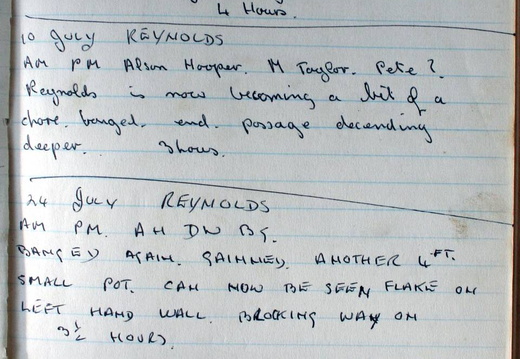 4 Hours.
10 July REYNOLDS
AM PM Alson Hooper. M Taylor. Pete ?.
Reynolds is now becoming a bit of a
chore. banged. end. passage decending
deeper. 3hours.
24 July REYNOLDS
AM PM. AH DW BG.
BANGED AGAIN. GAINNED. ANOTHER 4FT.
SMALL POT. CAN NOW BE SEEN FLAKE ON
LEFT HAND WALL. BROCKING WAY ON
3½ HOURS.